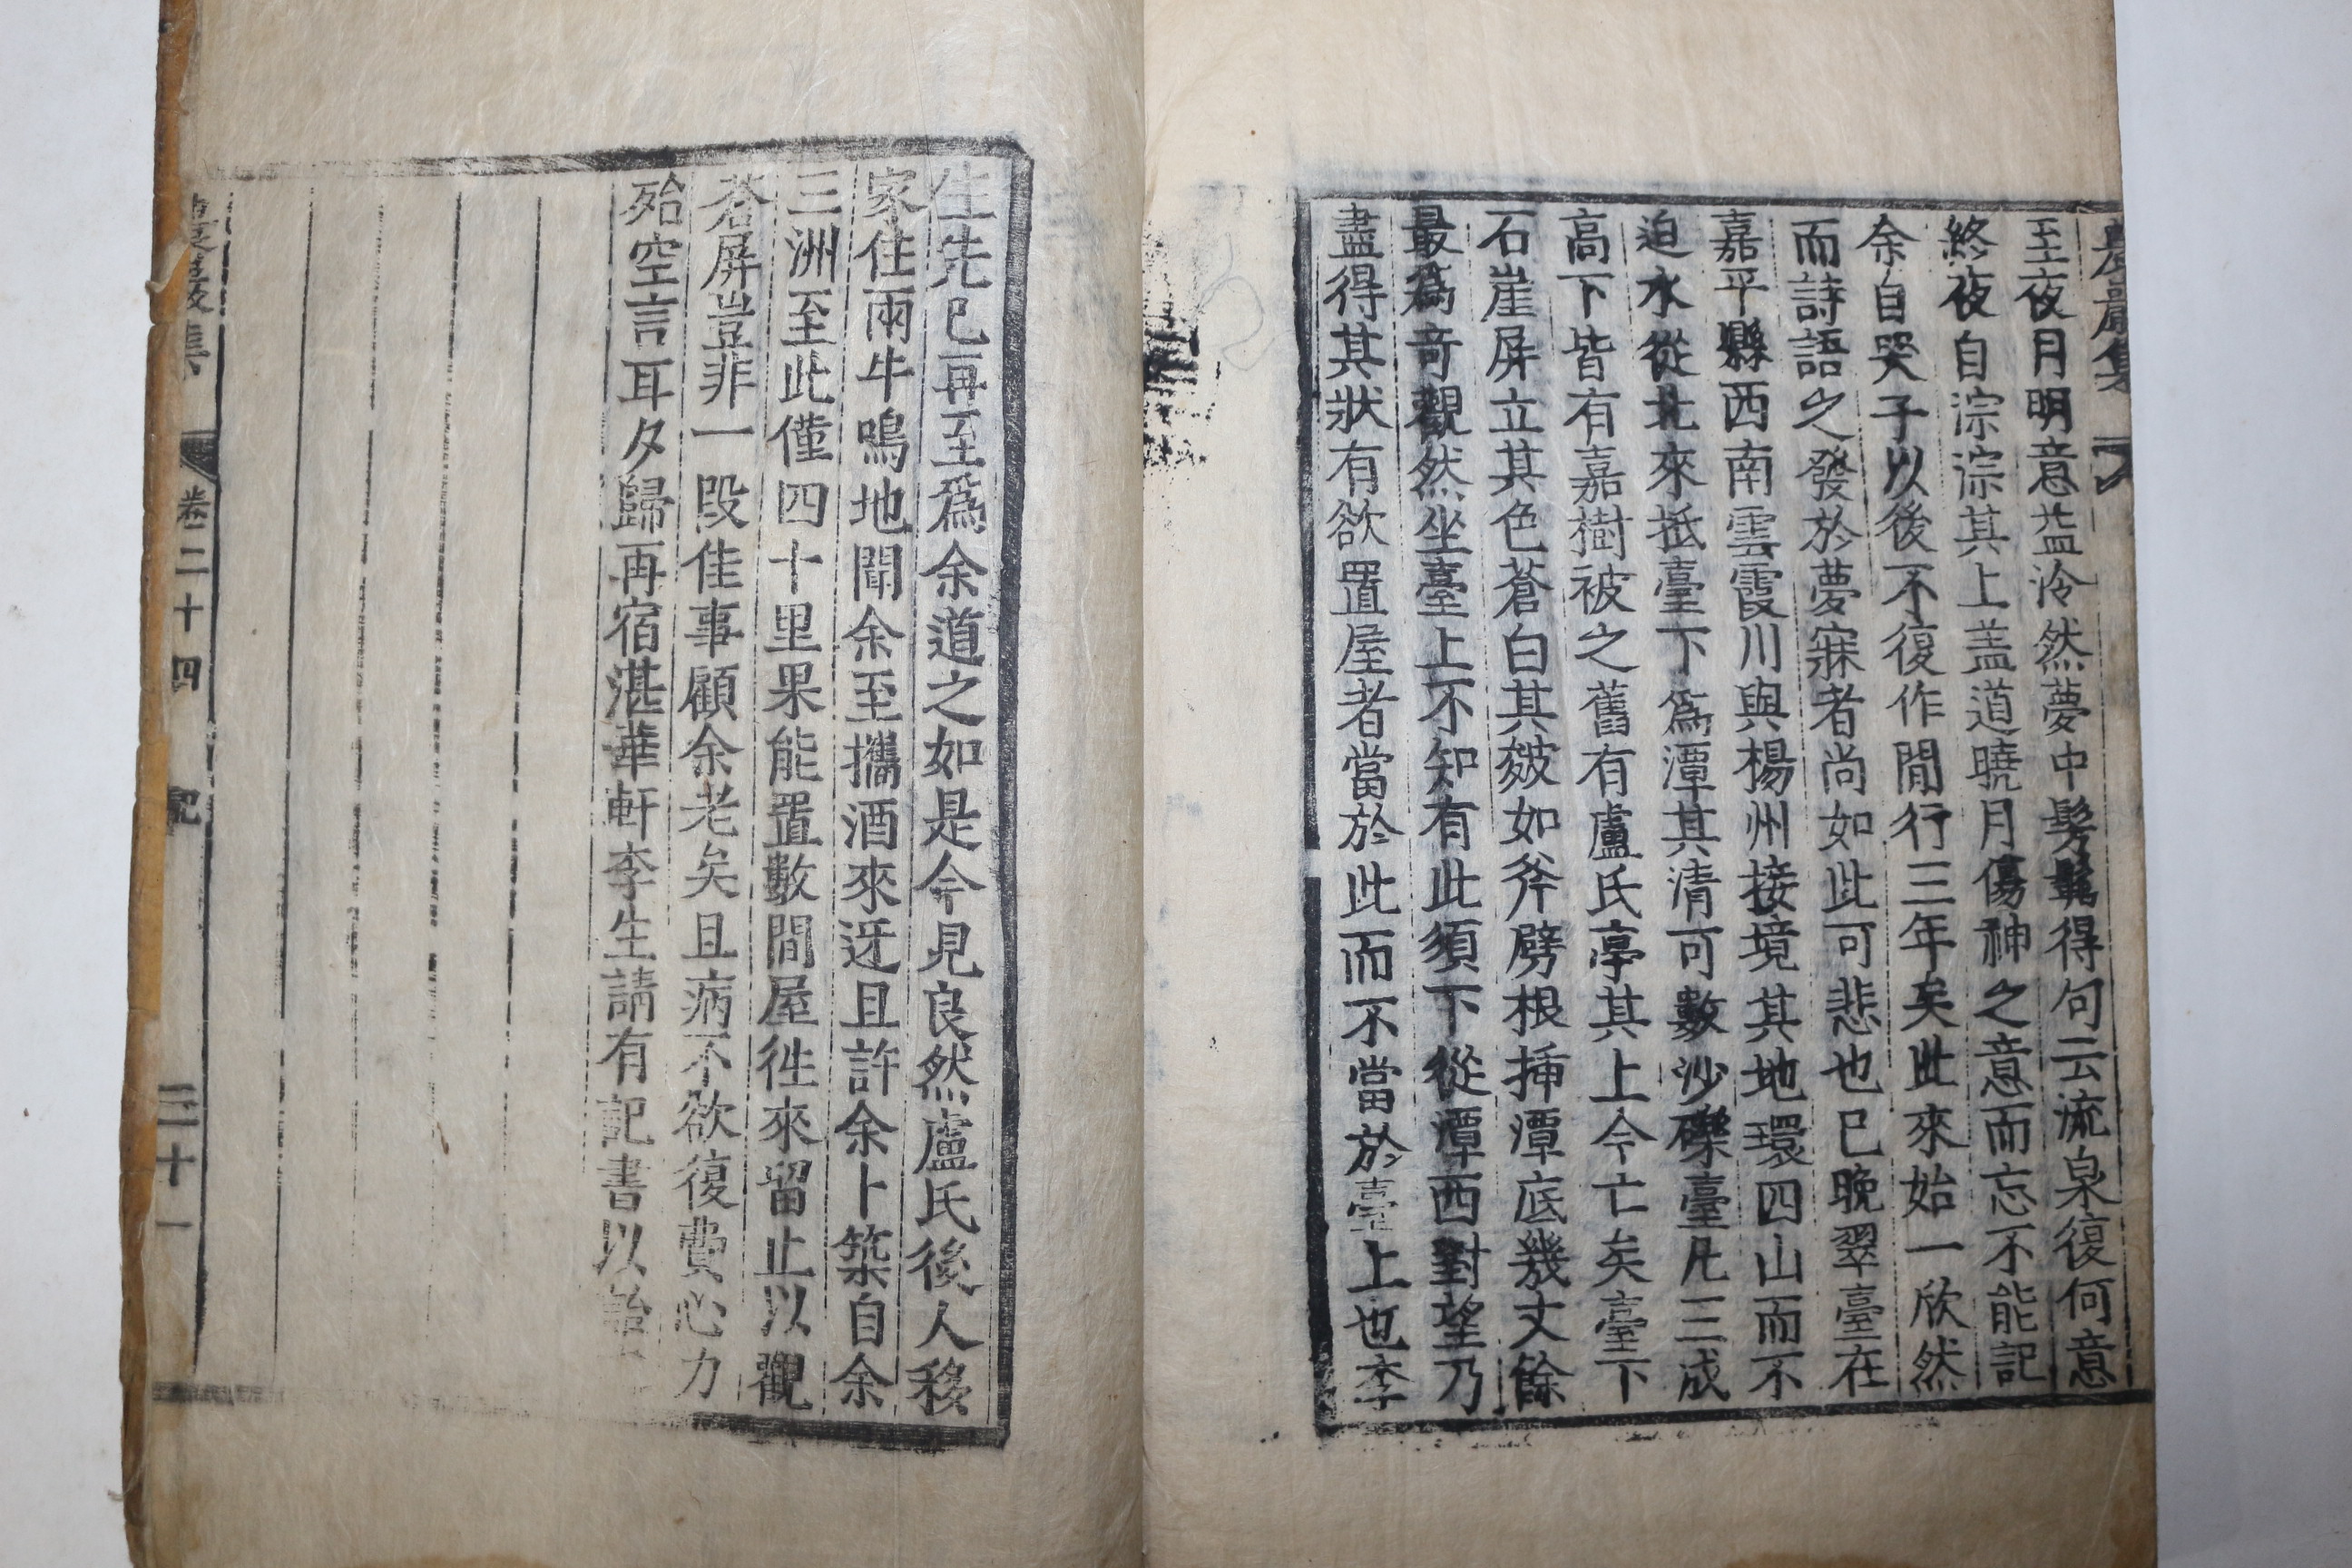 農巖集
至夜月明意益泠然夢中髣髴得句云流泉復何意
終夜自淙淙其上盖道曉月傷神之意而忘不能記
余自哭子以後不復作閒行三年矣此來始一欣然
而詩語之發於夢寐者尚如此可悲也已晩翠臺在
嘉平縣西南雲霞川與楊州接境其地環四山而不
迫水從北來抵臺下爲潭其清可數沙礫臺凡三成
高下皆有嘉樹被之舊有盧氏亭其上今亡矣臺下
石崖屏立其色蒼白其皴如斧劈根揷潭底幾丈餘
最爲奇觀然坐臺上不知有此須下從潭西對望乃
盡得其狀有欲置屋者當於此而不當於臺上也李
生先已再至爲余道之如是今見良然盧氏後人移
家住兩牛鳴地聞余至攜酒來迓且許余卜築自余
三洲至此僅四十里果能置數間屋徃來留止以觀
蒼屏豈非一段佳事顧余老矣且病不欲復費心力
殆空言耳夕歸再宿湛華軒李生請有記書以詒
農巖集 卷二十四 記 三十一